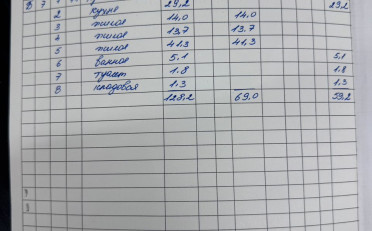 7 29,2 29,2
2 кухня 14,0 14,0
3 жилая 13,7 13.7
4 жилая 41,3 41,3
5 жилая
6 ванная 5,1 5,1
7 туалет 1,8 1,8
8 кладовая 1,3 1,3
128,2 69,0 59,2